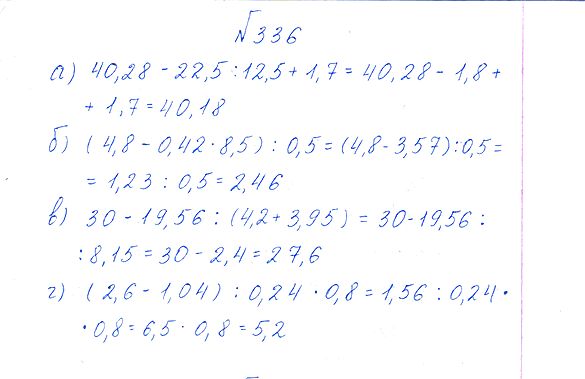 №336
а) 40,28 - 22,5 : 12,5 + 1,7 = 40,28 - 1,8 +
+ 1,7 = 40,18
б) (4,8 - 0,42 · 8,5) : 0,5 = (4,8 - 3,57) : 0,5 =
= 1,23 : 0,5 = 2,46
в) 30 - 19,56 : (4,2 + 3,95) = 30 - 19,56 :
: 8,15 = 30 - 2,4 = 27,6
г) (2,6 - 1,04) : 0,24 · 0,8 = 1,56 : 0,24 ·
· 0,8 = 6,5 · 0,8 = 5,2